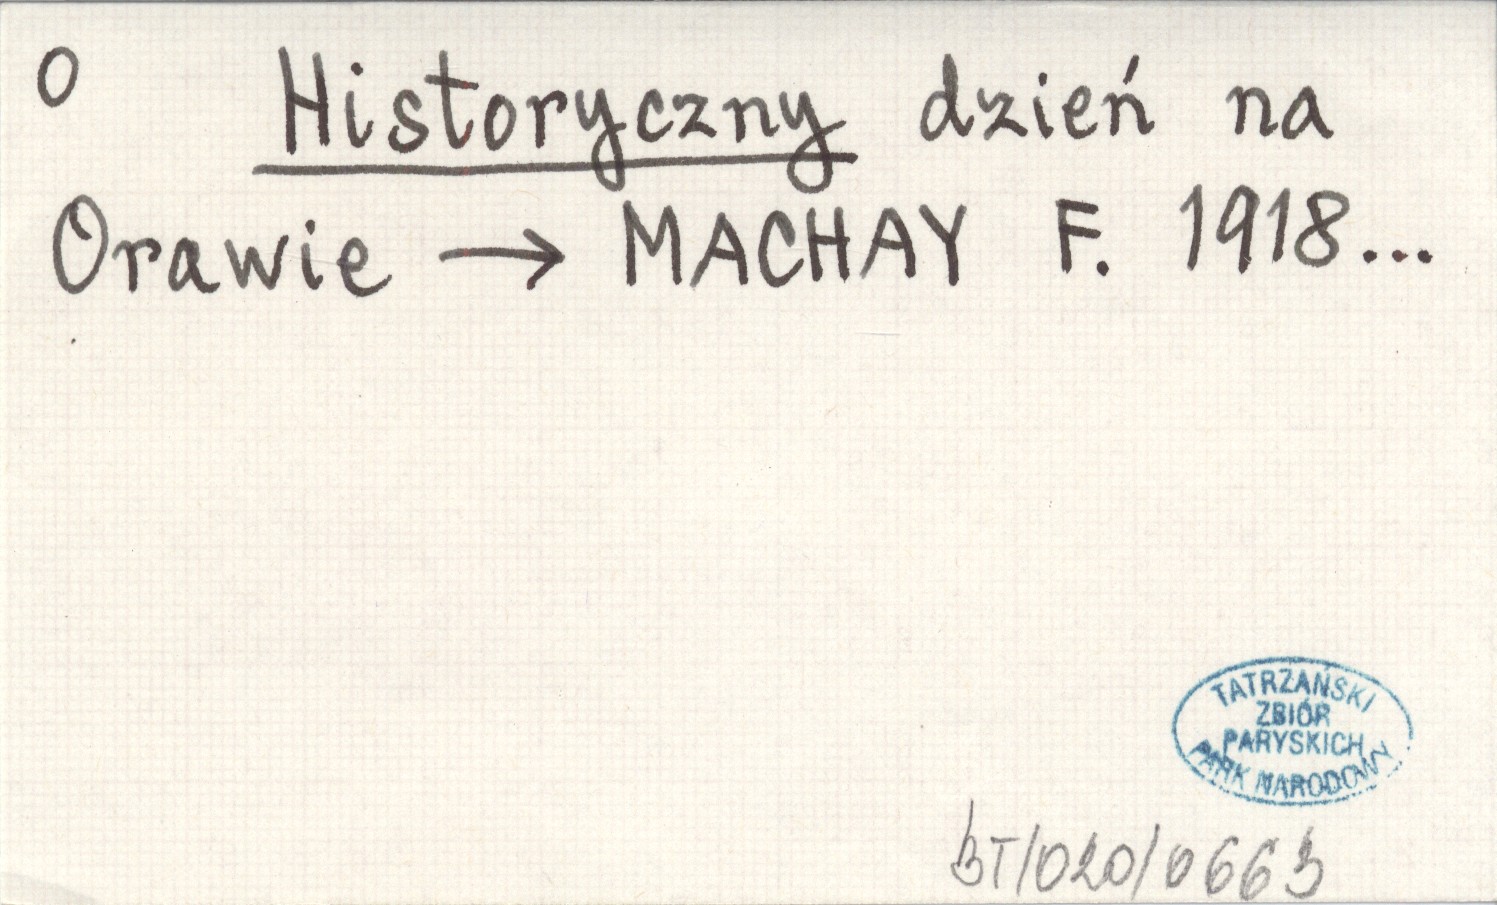 O Historyczny dzień na
Orawie → MACHAY F. 1918...
TATRZAŃSKI
ZBIÓR
PARYSKICH
PARK NARODOWY
BT/020/0663